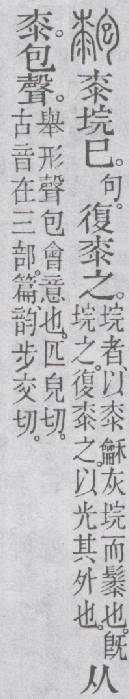 桼垸巳。句。復桼之。垸者、以桼龢灰垸而䰍也。旣垸之。復桼之以光其外也。从
桼包聲。舉形聲包會意也。匹皃切。古音在三部。篇韵步交切。